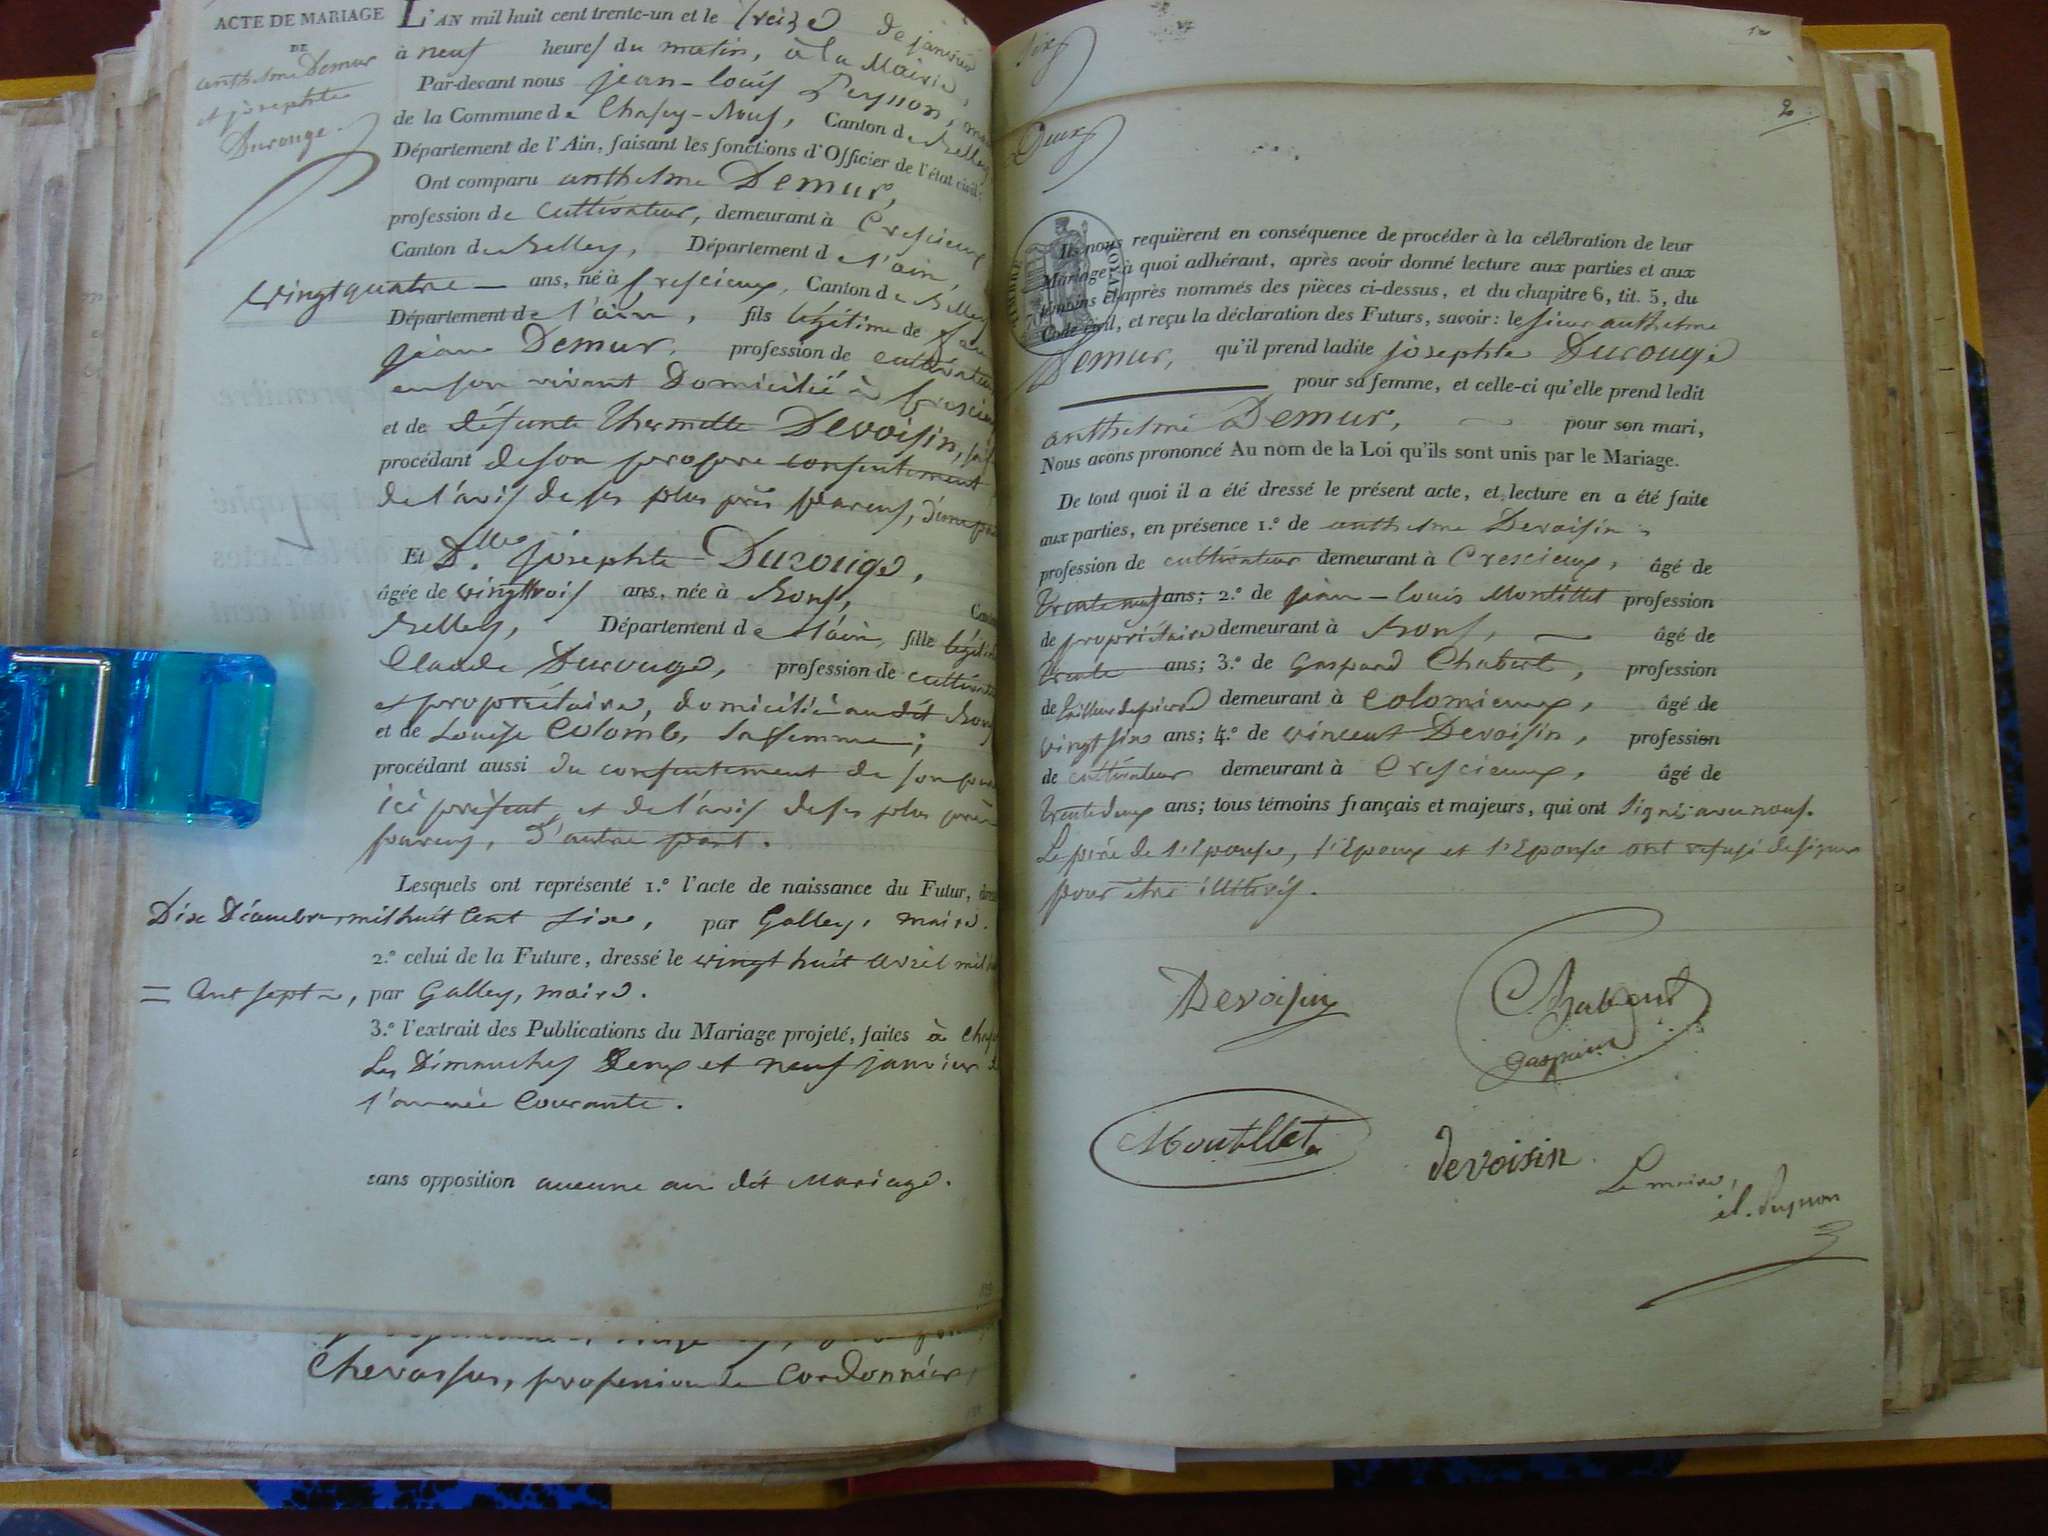 ACTE DE MARIAGE
DE
anthelme Demur
et josephte
Durouge.
L'AN mil huit cent trente-un et le treize de janvier
à neuf heures du matin, à la Mairie,
Par-devant nous jean-louis Peysson,
de la Commune de Chazey-Bons, Canton de Belley
Département de l'Ain, faisant les fonctions d'Officier de l'état civil:
Ont comparu anthelme Demur,
profession de cultivateur, demeurant à Crescieux
Canton de Belley, Département de l'ain,
vingtquatre ans, né à Crescieux, Canton de Belley
Département de l'ain, fils légitime de
Demur, profession de cultivateur
en son vivant Domicilié à Crescieux
et de défunte Devoisin,
procédant de son propre consentement
de l'avis de ses plus près parens, d'une part
Et Dlle josephte Durouge,
âgée de vingttrois ans, née à Bons,
Belley, Département de l'ain, fille légitime
Claude Durouge, profession de cultivateur
et propriétaire, domicilié audit Bons
et de Louise Colomb, sa femme;
procédant aussi du consentement de son père
ici présent, et de l'avis de ses plus près
parens, d'autre part.
Lesquels ont représenté 1.° l'acte de naissance du Futur,
Dix Décembre mil huit Cent six, par Galley, maire.
2.° celui de la Future, dressé le vingt huit avril mil
= Cent sept, par Galley, maire.
3.° l'extrait des Publications du Mariage projeté, faites à
Les Dimanches Deux et neuf janvier
l'année Courante.
sans opposition aucune au dit Mariage.
Chevassus, profession de Cordonnier,
six
2
Deux
TIMBRE ROYAL
Ils nous requièrent en conséquence de procéder à la célébration de leur
Mariage; à quoi adhérant, après avoir donné lecture aux parties et aux
témoins ci-après nommés des pièces ci-dessus, et du chapitre 6, tit. 5, du
Code civil, et reçu la déclaration des Futurs, savoir: le sieur anthelme
Demur, qu'il prend ladite josephte Durouge
pour sa femme, et celle-ci qu'elle prend ledit
anthelme Demur, pour son mari,
Nous avons prononcé Au nom de la Loi qu'ils sont unis par le Mariage.
De tout quoi il a été dressé le présent acte, et lecture en a été faite
aux parties, en présence 1.° de anthelme Devoisin,
profession de cultivateur demeurant à Crescieux, âgé de
trente neuf ans; 2.° de jean-louis Montillet profession
de propriétaire demeurant à Bons, âgé de
trente ans; 3.° de Gaspard Chabert, profession
de tailleur de pierre demeurant à Colomieux, âgé de
vingt six ans; 4.° de vincent Devoisin, profession
de cultivateur demeurant à Crescieux, âgé de
trente deux ans; tous témoins français et majeurs, qui ont signé avec nous.
Le père de l'Epouse, l'Epoux et l'Epouse ont refusé de signer
pour être illitérés.
Devoisin
Chabert
gaspard
Montillet
devoisin
Le maire,
Peysson